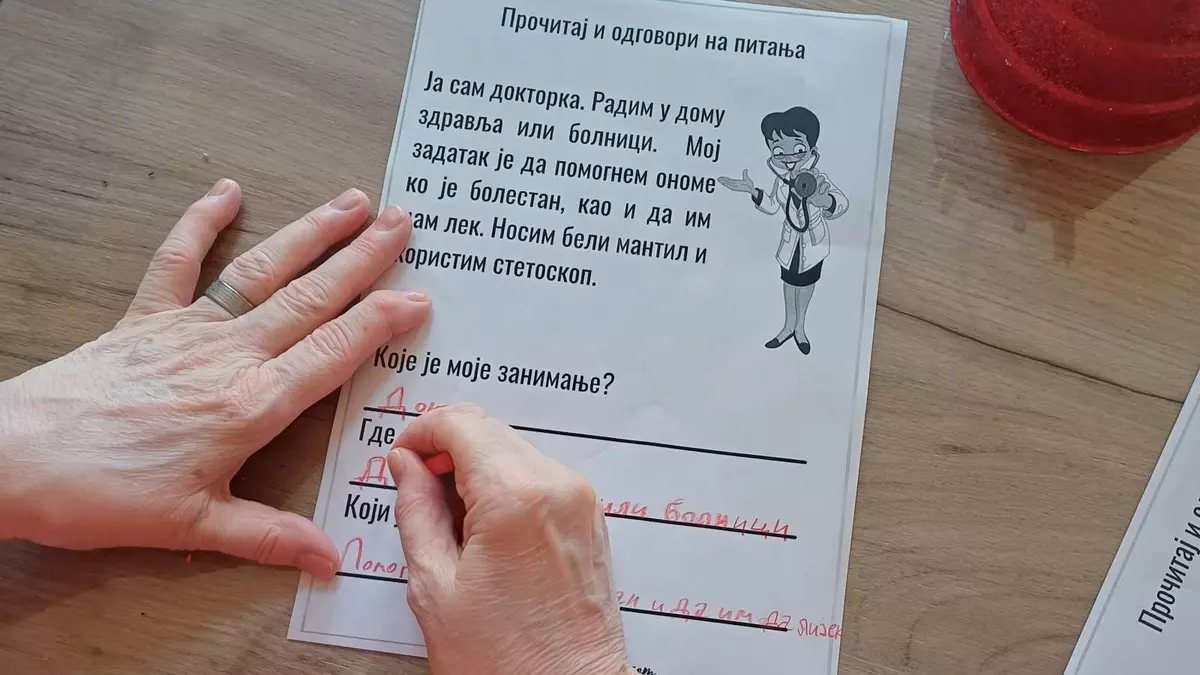 Прочитај и одговори на питања
Ја сам докторка. Радим у дому
здравља или болници. Мој
задатак је да помогнем ономе
ко је болестан, као и да им
дам лек. Носим бели мантил и
користим стетоскоп.
Које је моје занимање?
Где
или болници
Који
и да им да лијек
Прочитај и